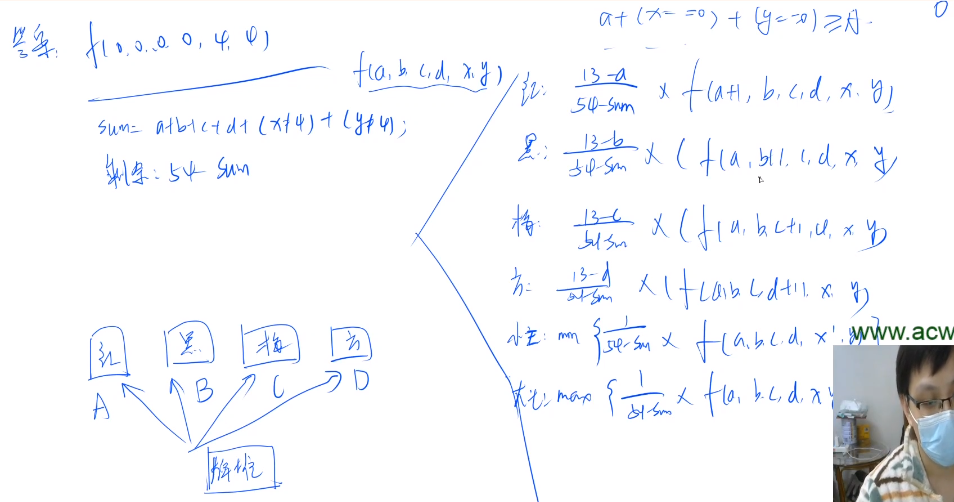 答案: f(0.0.0.0, 4, 4)
f(a, b. c, d, x, y)
sum= a+b+c+d+ (x≠4) + (y≠4);
剩余: 54- sum
a+(x==0)+(y==0)≥A.
0
红: 13-a / 54-sum × f(a+1, b, c, d, x. y)
黑: 13-b / 54-sum × (f(a, b+1, c, d, x, y
梅: 13-c / 54-sum × (f(a, b. c+1, d, x y)
方: 13-d / 54-sum × (f(a, b c, d+1), x. y)
小王: min { 1 / 54-sum × f(a, b. c. d, x', y) }
大王: max { 1 / 54-sum × f(a, b. c, d, x y
www.acw
红 黑 梅 方
A B C D
牌堆